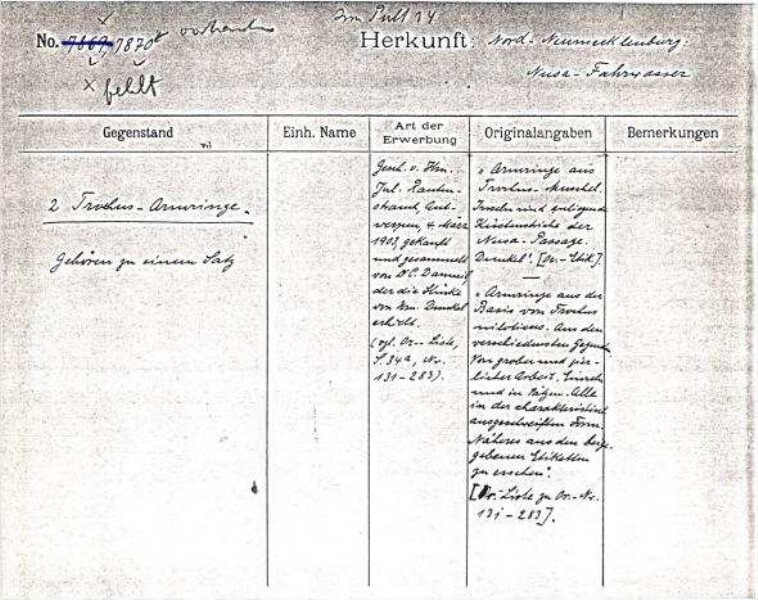 Im Pult 14
No. 7869, 7870 vorhanden
x fehlt
Herkunft: Nord-Neumecklenburg:
Nusa-Fahrwasser
Gegenstand
Einh. Name
Art der Erwerbung
Originalangaben
Bemerkungen
2 Trochus-Armringe.
Gehören zu einem Satz
Gesch. v. Hrn.
Jul. Rauten-
strauch, Ant-
werpen, 4. März
1903, gekauft
und gesammelt
von Dr C. Danneil,
der die Stücke
von Hrn. Dunckel
erhielt.
(vgl. Or.-Liste,
S. 34a, Nr.
131-283).
"Armringe aus
Trochus-Muschel.
Inseln und umliegende
Küstenstriche der
Nusa-Passage.
Dunckel". [Or.-Etik].
"Armringe aus der
Basis von Trochus
niloticus. Aus den
verschiedensten Gegenden
Von grober und zier-
licher Arbeit. Einzeln
und in Sätzen. Alle
in der charakteristisch
ausgeschweiften Form.
Näheres aus den beige-
gebenen Etiketten
zu ersehen".
[Or.-Liste zu Or.-Nr.
131-283].